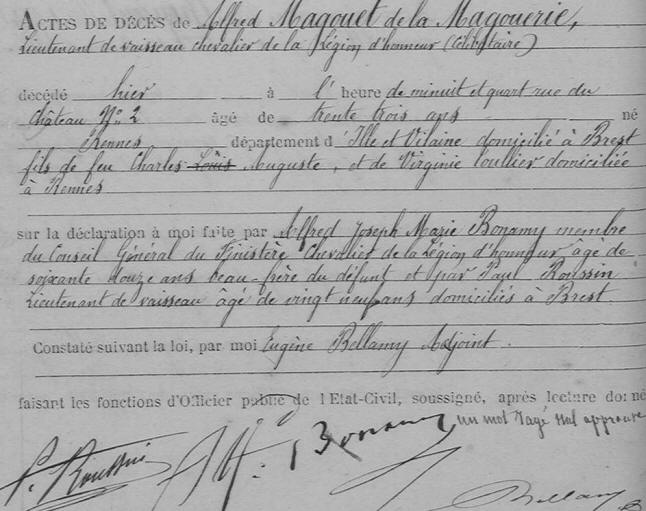 ACTES DE DÉCÈS de Alfred Magouet de la Magouerie,
Lieutenant de vaisseau chevalier de la Légion d'honneur (célibataire)
décédé hier à l' heure de minuit et quart rue du
Château Nº 2 âgé de trente trois ans né
Rennes département d'Ille et Vilaine domicilié à Brest
fils de feu Charles Louis Auguste, et de Virginie Loullier domiciliée
à Rennes
sur la déclaration à moi faite par Alfred Joseph Marie Bonamy membre
du Conseil Général du Finistère Chevalier de la Légion d'honneur âgé de
soixante douze ans beau-frère du défunt et par Paul Roussin
Lieutenant de vaisseau âgé de vingt neuf ans domiciliés à Brest.
Constaté suivant la loi, par moi Eugène Bellamy Adjoint.
faisant les fonctions d'Officier public de l'Etat-Civil, soussigné, après lecture donné
un mot rayé nul approuvé
P. Roussin Alf. Bonamy
Bellamy